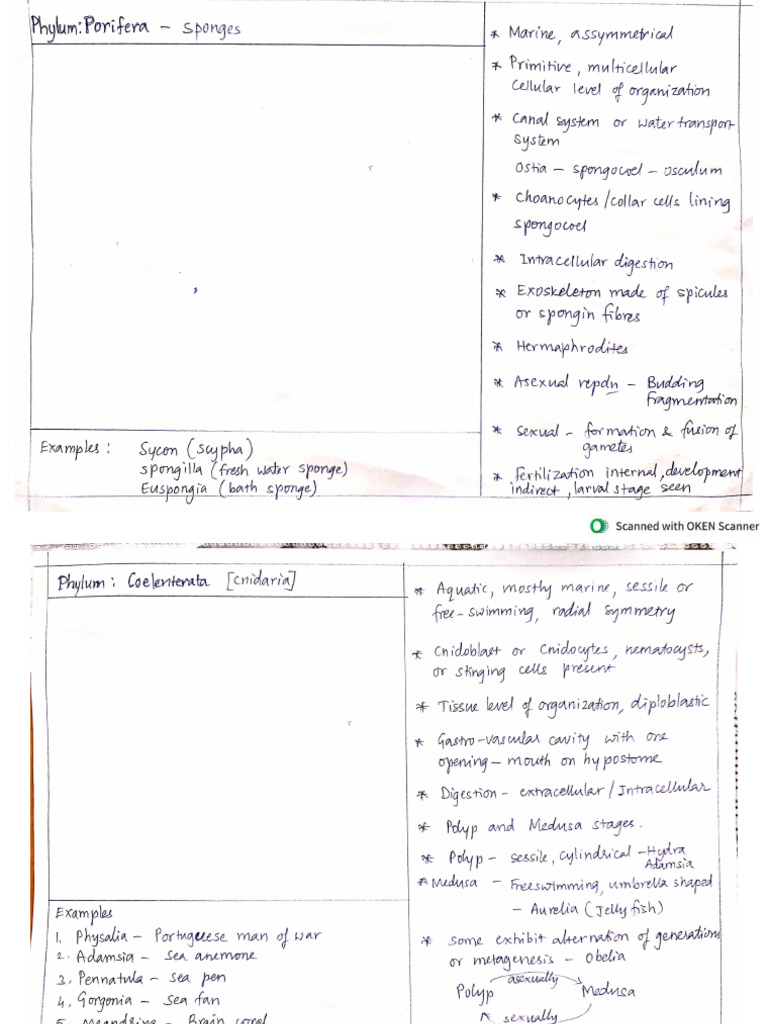 Phylum: Porifera - sponges
* Marine, assymmetrical
* Primitive, multicellular
cellular level of organization
* Canal system or water transport
system
Ostia - spongocoel - osculum
* Choanocytes/collar cells lining
spongocoel
* Intracellular digestion
* Exoskeleton made of spicules
or spongin fibres
* Hermaphrodites
* Asexual repdn - Budding
fragmentation
* sexual - formation & fusion of
gametes
* Fertilization internal, development
indirect, larval stage seen
Examples: Sycon (scypha)
spongilla (fresh water sponge)
Euspongia (bath sponge)
Scanned with OKEN Scanner
Phylum: Coelenterata [cnidaria]
* Aquatic, mostly marine, sessile or
free-swimming, radial symmetry
* Cnidoblast or Cnidocytes, nematocysts,
or stinging cells present
* Tissue level of organization, diploblastic
* Gastro-vascular cavity with one
opening - mouth on hypostome
* Digestion - extracellular/Intracellular
* Polyp and Medusa stages.
* Polyp - sessile, cylindrical - Hydra
Adamsia
* Medusa - Freeswimming, umbrella shaped
- Aurelia (Jelly fish)
* some exhibit alternation of generations
or metagenesis - Obelia
asexually
Polyp Medusa
sexually
Examples
1. Physalia - Portuguese man of war
2. Adamsia - sea anemone
3. Pennatula - sea pen
4. Gorgonia - sea fan
5. Meandrina - Brain coral